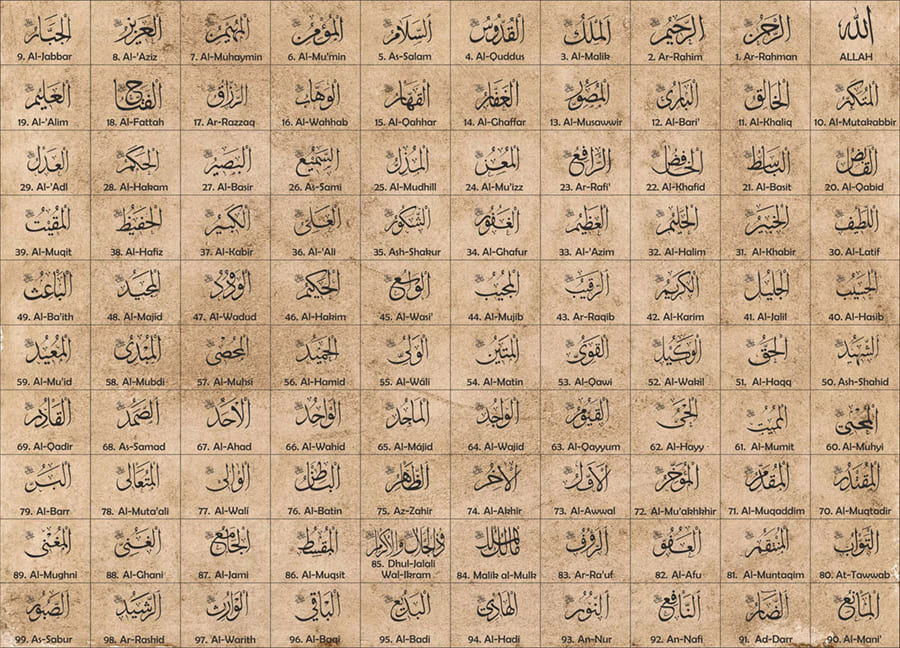 الله
ALLAH
الرحمن
1. Ar-Rahman
الرحيم
2. Ar-Rahim
الملك
3. Al-Malik
القدوس
4. Al-Quddus
السلام
5. As-Salam
المؤمن
6. Al-Mu'min
المهيمن
7. Al-Muhaymin
العزيز
8. Al-'Aziz
الجبار
9. Al-Jabbar
المتكبر
10. Al-Mutakabbir
الخالق
11. Al-Khaliq
البارئ
12. Al-Bari'
المصور
13. Al-Musawwir
الغفار
14. Al-Ghaffar
القهار
15. Al-Qahhar
الوهاب
16. Al-Wahhab
الرزاق
17. Ar-Razzaq
الفتاح
18. Al-Fattah
العليم
19. Al-'Alim
القابض
20. Al-Qabid
الباسط
21. Al-Basit
الخافض
22. Al-Khafid
الرافع
23. Ar-Rafi'
المعز
24. Al-Mu'izz
المذل
25. Al-Mudhill
السميع
26. As-Sami
البصير
27. Al-Basir
الحكم
28. Al-Hakam
العدل
29. Al-'Adl
اللطيف
30. Al-Latif
الخبير
31. Al-Khabir
الحليم
32. Al-Halim
العظيم
33. Al-'Azim
الغفور
34. Al-Ghafur
الشكور
35. Ash-Shakur
العلي
36. Al-'Ali
الكبير
37. Al-Kabir
الحفيظ
38. Al-Hafiz
المقيت
39. Al-Muqit
الحسيب
40. Al-Hasib
الجليل
41. Al-Jalil
الكريم
42. Al-Karim
الرقيب
43. Ar-Raqib
المجيب
44. Al-Mujib
الواسع
45. Al-Wasi'
الحكيم
46. Al-Hakim
الودود
47. Al-Wadud
المجيد
48. Al-Majid
الباعث
49. Al-Ba'ith
الشهيد
50. Ash-Shahid
الحق
51. Al-Haqq
الوكيل
52. Al-Wakil
القوي
53. Al-Qawi
المتين
54. Al-Matin
الولي
55. Al-Wáli
الحميد
56. Al-Hamid
المحصي
57. Al-Muhsi
المبدئ
58. Al-Mubdi
المعيد
59. Al-Mu'id
المحيي
60. Al-Muhyi
المميت
61. Al-Mumit
الحي
62. Al-Hayy
القيوم
63. Al-Qayyum
الواجد
64. Al-Wajid
الماجد
65. Al-Májid
الواحد
66. Al-Wahid
الاحد
67. Al-Ahad
الصمد
68. As-Samad
القادر
69. Al-Qadir
المقتدر
70. Al-Muqtadir
المقدم
71. Al-Muqaddim
المؤخر
72. Al-Mu'akhkhir
الاول
73. Al-Awwal
الاخر
74. Al-Akhir
الظاهر
75. Az-Zahir
الباطن
76. Al-Batin
الوالي
77. Al-Wali
المتعالي
78. Al-Muta'ali
البر
79. Al-Barr
التواب
80. At-Tawwab
المنتقم
81. Al-Muntaqim
العفو
82. Al-Afu
الرؤوف
83. Ar-Ra'uf
مالك الملك
84. Malik al-Mulk
ذو الجلال والاكرام
85. Dhul-Jalali
Wal-Ikram
المقسط
86. Al-Muqsit
الجامع
87. Al-Jami
الغني
88. Al-Ghani
المغني
89. Al-Mughni
المانع
90. Al-Mani'
الضار
91. Ad-Darr
النافع
92. An-Nafi
النور
93. An-Nur
الهادي
94. Al-Hadi
البديع
95. Al-Badi
الباقي
96. Al-Baqi
الوارث
97. Al-Warith
الرشيد
98. Ar-Rashid
الصبور
99. As-Sabur